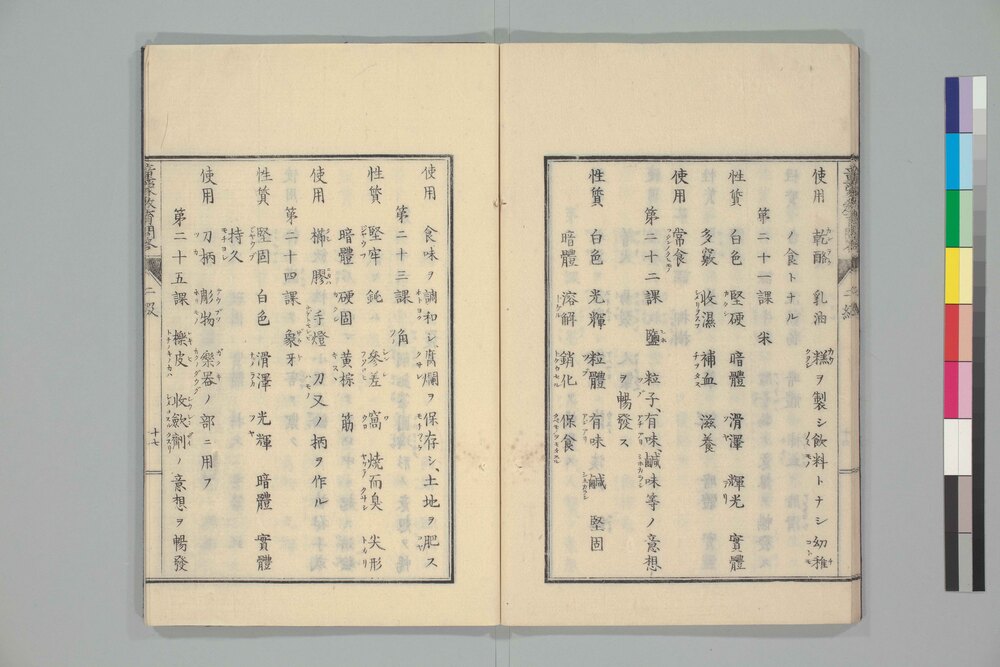 使用 乾酪 乳油 糕ヲ製シ飲料トナシ幼稚
ノ食トナル
第二十一課 米
性質 白色 堅硬 暗體 滑澤 輝光 實體
多竅 收濕 補血 滋養
使用 常食
第二十二課 鹽 粒子、有味、鹹味等ノ意想
ヲ暢發ス
性質 白色 光輝 粒體 有味 鹹 堅固
暗體 溶解 銷化 保食
使用 食味ヲ調和シ、腐爛ヲ保存シ、土地ヲ肥ス
第二十三課 角
性質 堅牢 鈍 參差 窩 燒而臭 尖形
暗體 硬固 黄棕 筋
使用 櫛 膠 手燈 刀叉ノ柄ヲ作ル
第二十四課 象牙
性質 堅固 白色 滑澤 光輝 暗體 實體
持久
使用 刀柄 彫物 樂器ノ部ニ用フ
第二十五課 櫟皮 收斂劑ノ意想ヲ暢發
二級
十七